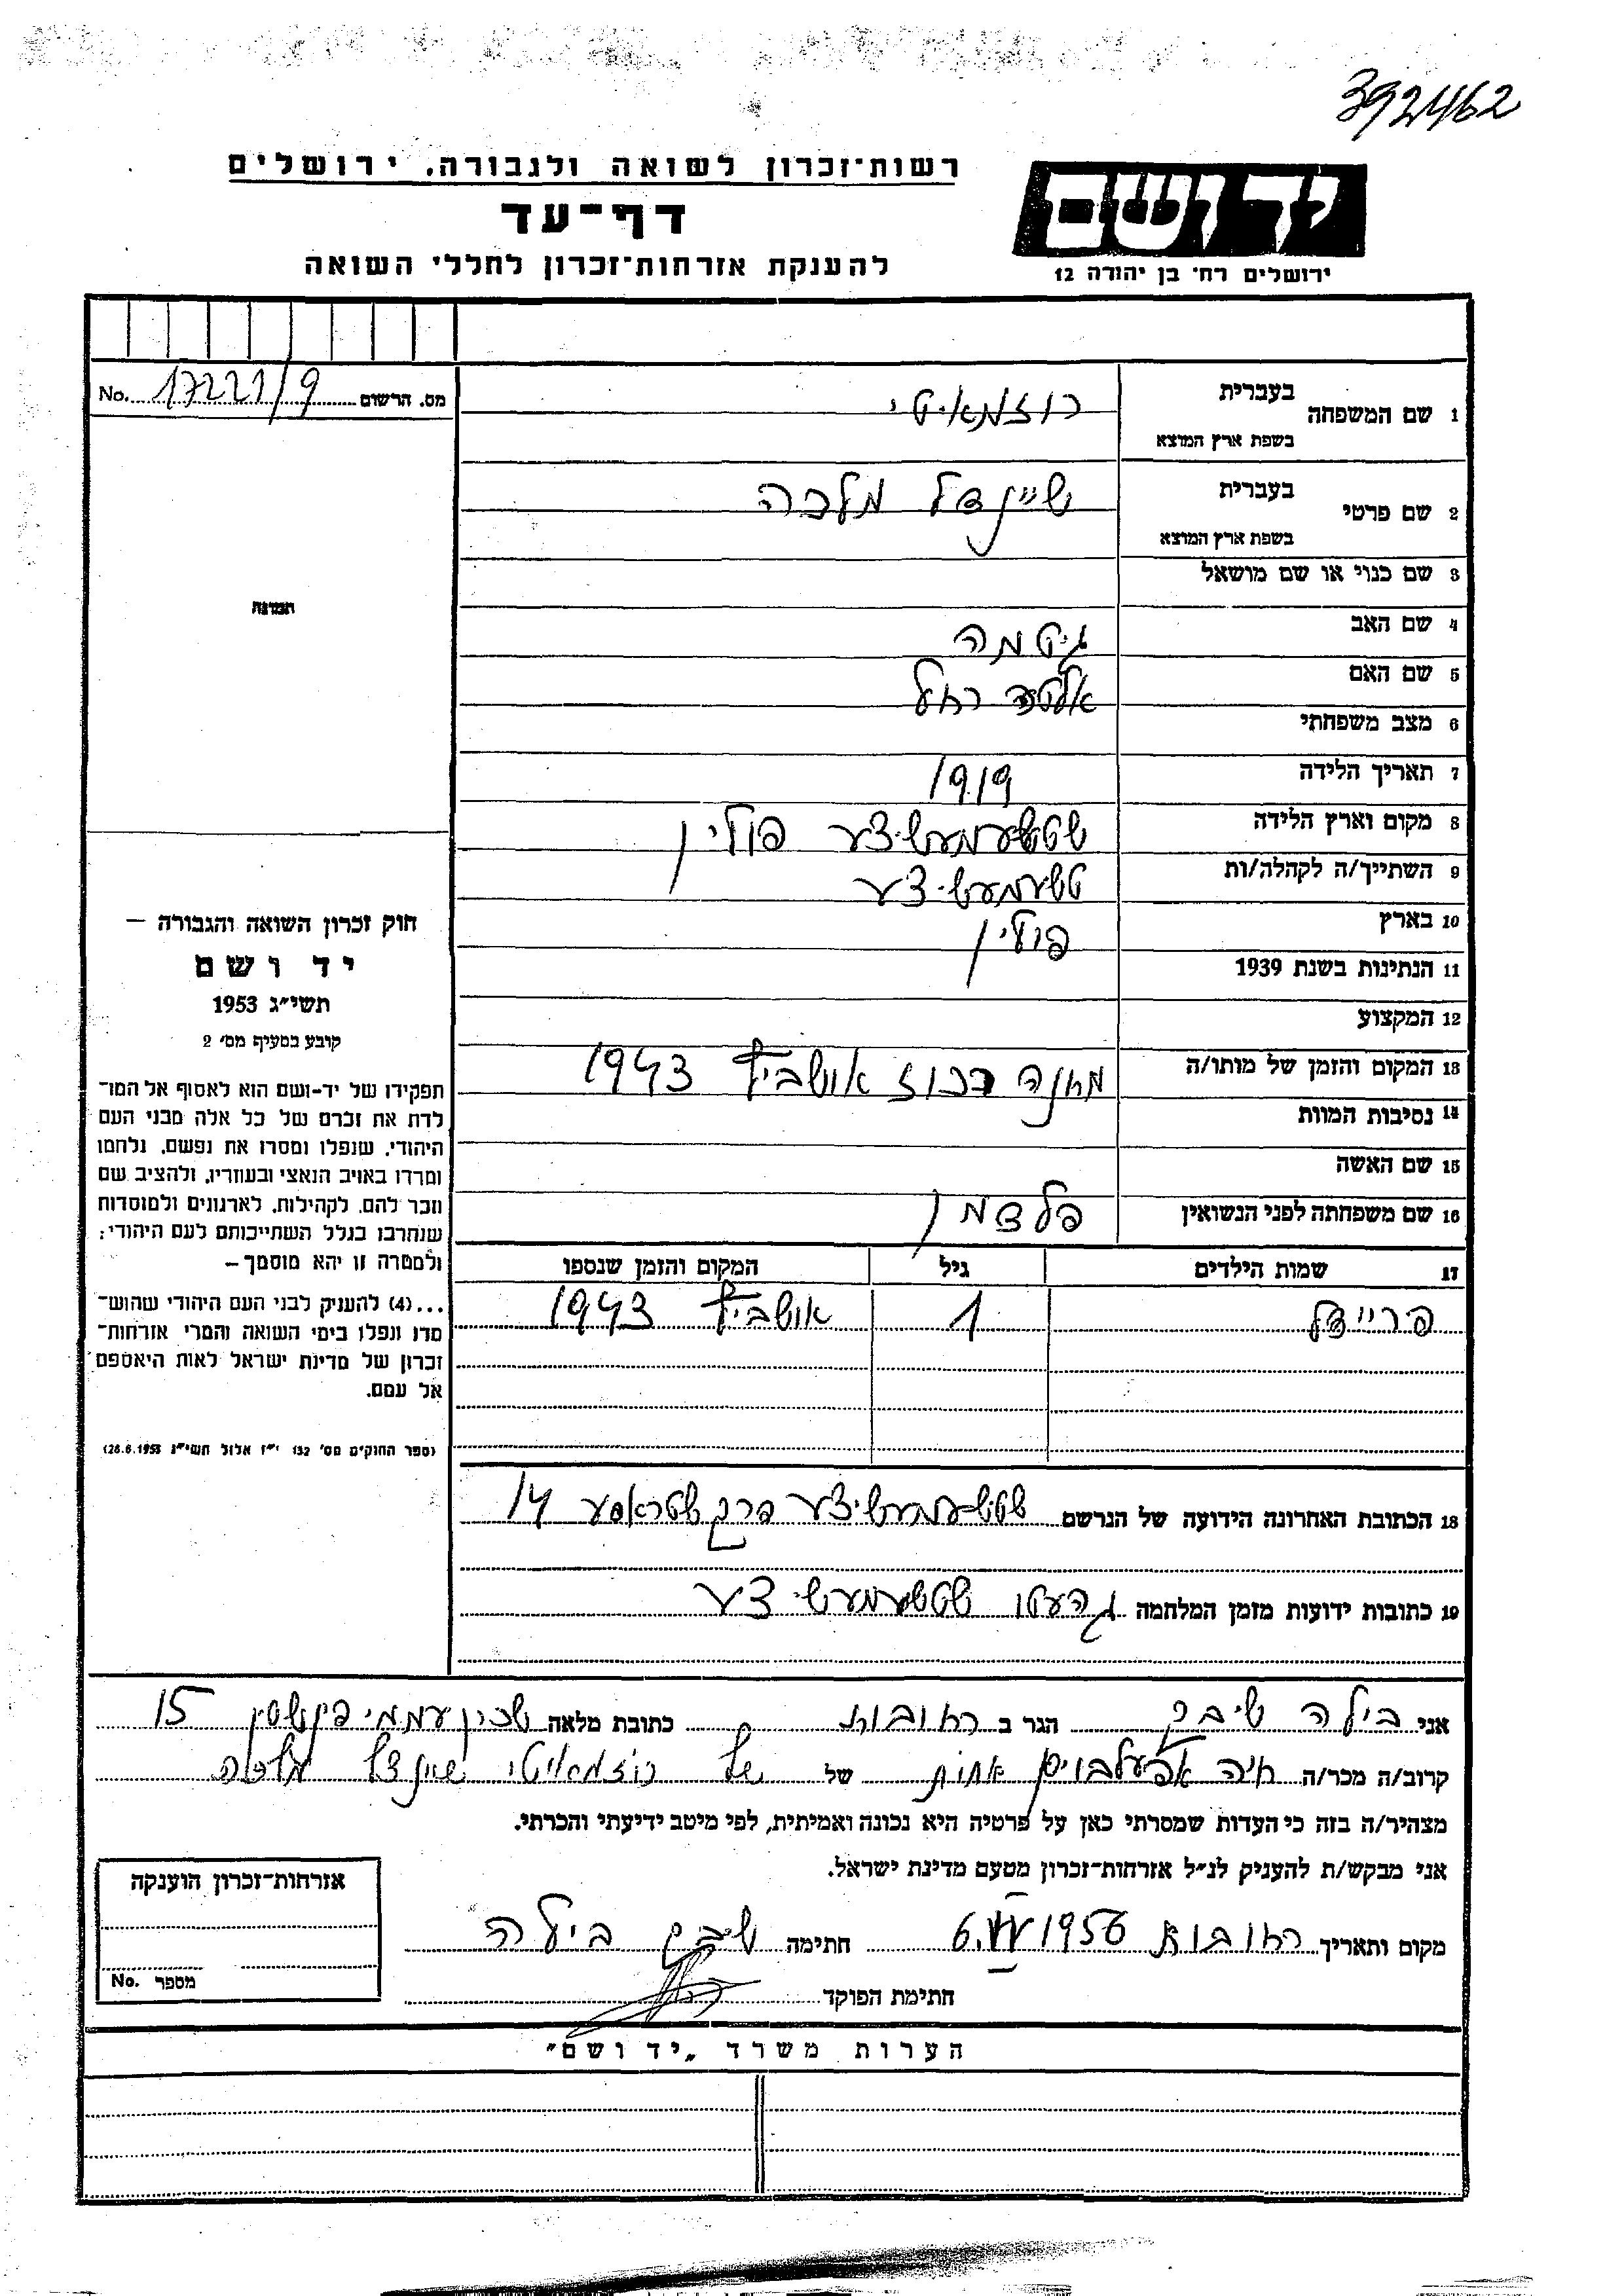 392462
רשות־זכרון לשואה ולגבורה, ירושלים
יד ושם
דף־עד
ירושלים רח׳ בן יהודה 12
להענקת אזרחות־זכרון לחללי השואה
מס. הרשום 17221/9 No.
1 שם המשפחה בעברית
בשפת ארץ המוצא
2 שם פרטי בעברית שיינדל מלכה
בשפת ארץ המוצא
3 שם כנוי או שם מושאל
תמונה
4 שם האב
5 שם האם רחל
6 מצב משפחתי
7 תאריך הלידה 1919
8 מקום וארץ הלידה פולין
9 השתייך/ה לקהלה/ות
10 בארץ פולין
11 הנתינות בשנת 1939
12 המקצוע
13 המקום והזמן של מותו/ה מחנה רכוז אושביץ 1943
14 נסיבות המוות
15 שם האשה
16 שם משפחתה לפני הנשואין
17 שמות הילדים גיל המקום והזמן שנספו
פריידל 1 אושביץ 1943
חוק זכרון השואה והגבורה —
יד ושם
תשי״ג 1953
קובע בסעיף מס׳ 2
תפקידו של יד-ושם הוא לאסוף אל המו־
לדת את זכרם של כל אלה מבני העם
היהודי, שנפלו ומסרו את נפשם, נלחמו
ומרדו באויב הנאצי ובעוזריו, ולהציב שם
וזכר להם, לקהילות, לארגונים ולמוסדות
שנחרבו בגלל השתייכותם לעם היהודי;
ולמטרה זו יהא מוסמך —
...(4) להעניק לבני העם היהודי שהוש־
מדו ונפלו בימי השואה והמרי אזרחות־
זכרון של מדינת ישראל לאות היאספם
אל עמם.
(ספר החוקים מס׳ 132 י״ז אלול תשי״ג 28.8.1953)
18 הכתובת האחרונה הידועה של הנרשם 14
19 כתובות ידועות מזמן המלחמה
אני הגר ב רחובות כתובת מלאה שכון עממי 15
קרוב/ה מכר/ה אחות של שיינדל מלכה
מצהיר/ה בזה כי העדות שמסרתי כאן על פרטיה היא נכונה ואמיתית, לפי מיטב ידיעתי והכרתי.
אני מבקש/ת להעניק לנ״ל אזרחות־זכרון מטעם מדינת ישראל.
מקום ותאריך רחובות 1956 חתימה
חתימת הפוקד
אזרחות־זכרון הוענקה
מספר No.
הערות משרד „יד ושם״